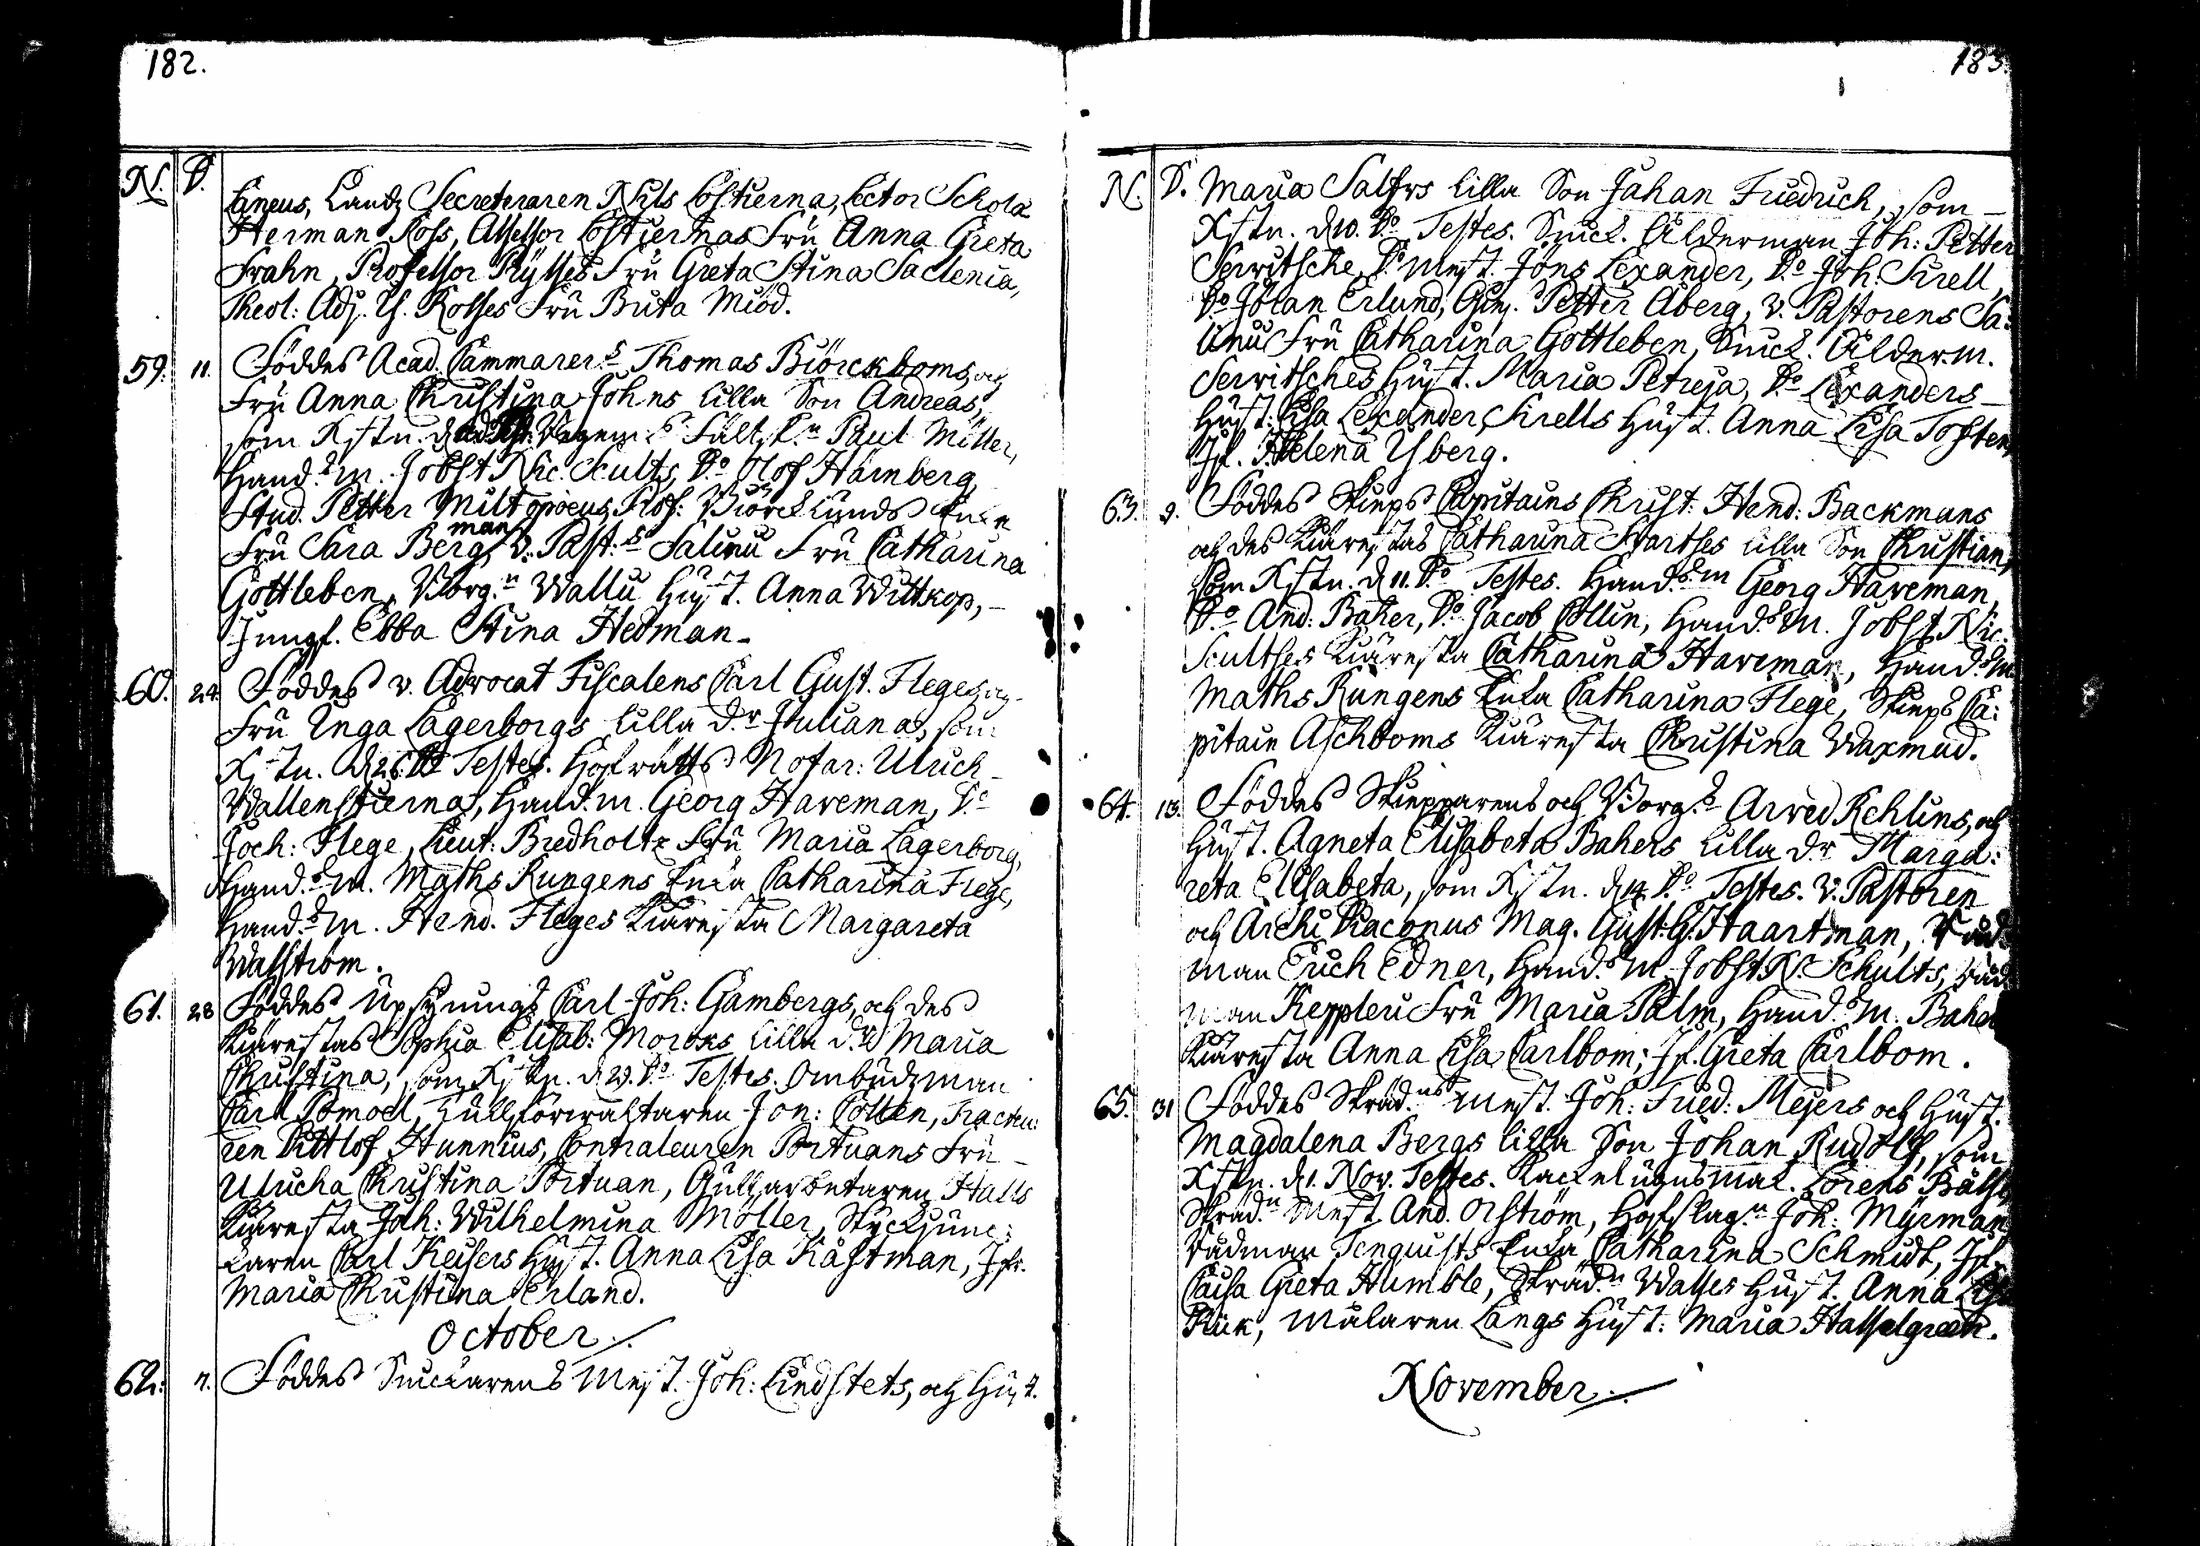 182.
N. D.
Lineus, Landz Secreteraren Nils Costierna, Lector Scholæ
Herman Ross, Assessor Costiernas Fru Anna Greta
Frahn, Professor Ryttses Fru Greta Stina Saclenia,
Theol: Adj. Is. Rosses Fru Brita Miöd.
59. 11. Föddes Acad. Cammarer:s Thomas Biörckboms och
Fru Anna Christina Johns lilla Son Andreas,
som Xstn. Fält Paul Möller,
Hand.s m. Jobst Nic. Scults, D:o Olof Hamberg,
Stud. Petter Miltopoeus, Prof: Biörcklunds Enka
Fru Sara Bergman, v. Past:s Salinii Fru Catharina
Gottleben, Borg.n Wallii Hust. Anna Wittkop,
Jungf. Ebba Stina Hedman.
60. 24. Föddes v. Advocat Fiscalens Carl Gust. Fleges och
Fru Inga Lagerborgs lilla d:r Juliana, som
Xstn. d 26 D:o Testes. Hofrätts Notar: Ulrich
Wallenstierna, Hand.m. Georg Haveman, D:o
Joch: Flege, Lieut: Bredholtz Fru Maria Lagerborg,
Hand.s m. Maths Rungens Enka Catharina Flege,
Hand.s m. Hend. Fleges Kiäresta Margareta
Walström.
61. 28 Föddes Upsynings Carl Joh: Gambergs, och des
Kiärestas Sophia Elisab: Moroks lilla d:r Maria
Christina, som Xstn. d 29. D:o Testes. Ombudzman
Carl Pomoell, Tullförwaltaren Jon: Collen, Tracteu:
ren Dittlof Hunnius, Contraleuren Portuans Fru
Ulricha Christina Portuan, Gullarbetaren Halls
Kiäresta Joh: Wilhelmina Möller, Styckjunc:
karen Carl Keisers Hust. Anna Lisa Kåstman, Jfr.
Maria Christina Erland.
October.
62. 7. Föddes Snickarens Mest. Joh: Lindstets, och Hust.
183.
N. D. Maria Salfvs lilla Son Johan Friedrich, som
Xstn. d 10. D:o Testes. Snick. Ålderman Joh: Petter
Serwitsche, D:o Mest. Jöns Lexander, D:o Joh. Kirell,
D:o Jölan Erlund, Petter Åberg, v. Pastorens Sa:
linii Fru Catharina Gottleben, Snick. Ålderm.
Serwitsches Hust. Maria Petreja, D:o Lexanders
Hust: Lisa Lexander, Kirells Hust. Anna Lisa Tosten,
Jf. Helena Ysberg.
63. 9. Föddes Skieps Capitains Christ: Hend: Backmans
och des Kiärestas Catharina Hartses lilla Son Christian,
som Xstn. d 11. D:o Testes. Hand.s m Georg Haveman,
D:o And: Baher, D:o Jacob Collin, Hand.s m. Jobst Nic.
Scultses Kiäresta Catharina Haveman, Hand.s m
Maths Rungens Enka Catharina Flege, Skieps Ca:
pitain Aschboms Kiäresta Christina Waxmud.
64. 13. Föddes Skiepparens och Borg.s Arved Rehlins, och
Hust. Agneta Elisabeta Bahers lilla d:r Marga:
reta Elisabeta, som Xstn. d 14 D:o Testes. v. Pastoren
och Archi Diaconus Mag. Gust. G. Haartman, Råd
man Erich Edner, Hand.s m. Jobst N. Schults, Råd
man Keppleri Fru Maria Palm, Hand.s m. Bahers
Kiäresta Anna Lisa Carlbom; Jf. Greta Carlbom.
65. 31 Föddes Skräd.ns Mest. Joh: Fried: Mejers och Hust.
Magdalena Bergs lilla Son Johan Rudolf, som
Xstn. d 1. Nov. Testes. Kackelugnsmak. Lorens
Skräd.n Mest. And. Orström, Hofslag.n Joh: Myrman,
Rådman Tenquists Enka Catharina Schmidt, Jf.
Caisa Greta Humble, Skräd.n Walses Hust. Anna Lisa
Riik, Målaren Längs Hust: Maria Hasselgreen.
November.